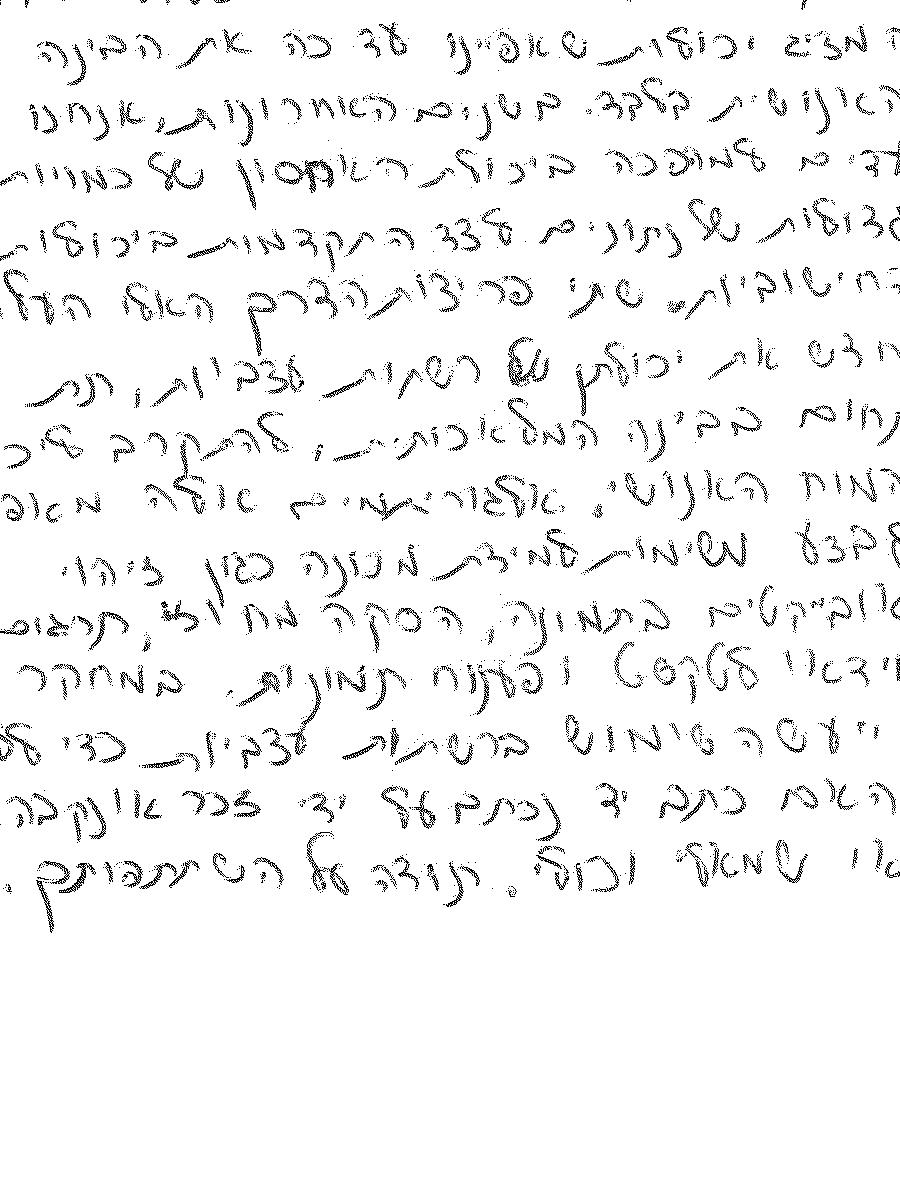 המציג יכולות שאפיינו עד כה את הבינה
האנושית בלבד. בשנים האחרונות, אנחנו
עדים למהפכה ביכולת האחסון של כמויות
גדולות של נתונים לצד התקדמות ביכולות
החישוביות. שתי פריצות הדרך האלו העלו
חדש את יכולתן של רשתות עצביות, תת
תחום בבינה המלאכותית, להתקרב ליכ
המוח האנושי. אלגוריתמים אלה מאופ
לבצע משימות למידת מכונה כגון זיהוי
אובייקטים בתמונה, הסקה מחוזי, תרגום
וידאו לטקסט ופענוח תמונות. במחקר
ייעשה שימוש ברשתות עצביות כדי לל
האם כתב יד נכתב על ידי זכר או נקבה
או שמאלי וכולי. תודה על השתתפותך.